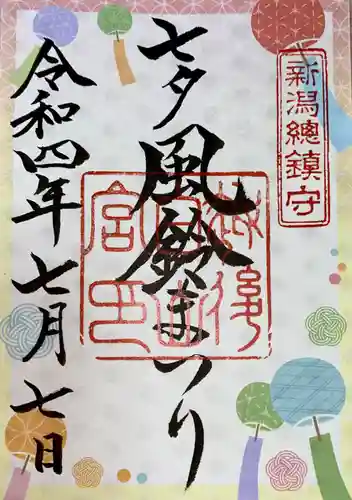 新潟總鎮守
七夕風鈴まつり
令和四年七月七日